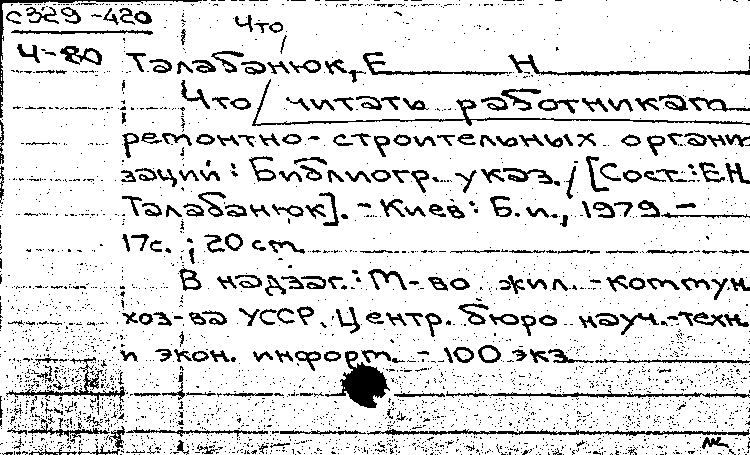 с329-420
Что
Ч-80
Талабанюк, Е Н
Что / читать работникам
ремонтно-строительных органи
заций : Библиогр. указ. / [Сост.: Е.Н.
Талабанюк]. - Киев : Б.и., 1979. -
17с. ; 20 см.
В надзаг.: М-во жил.-коммун.
хоз-ва УССР. Центр. бюро науч.-техн.
и экон. информ. - 100 экз.